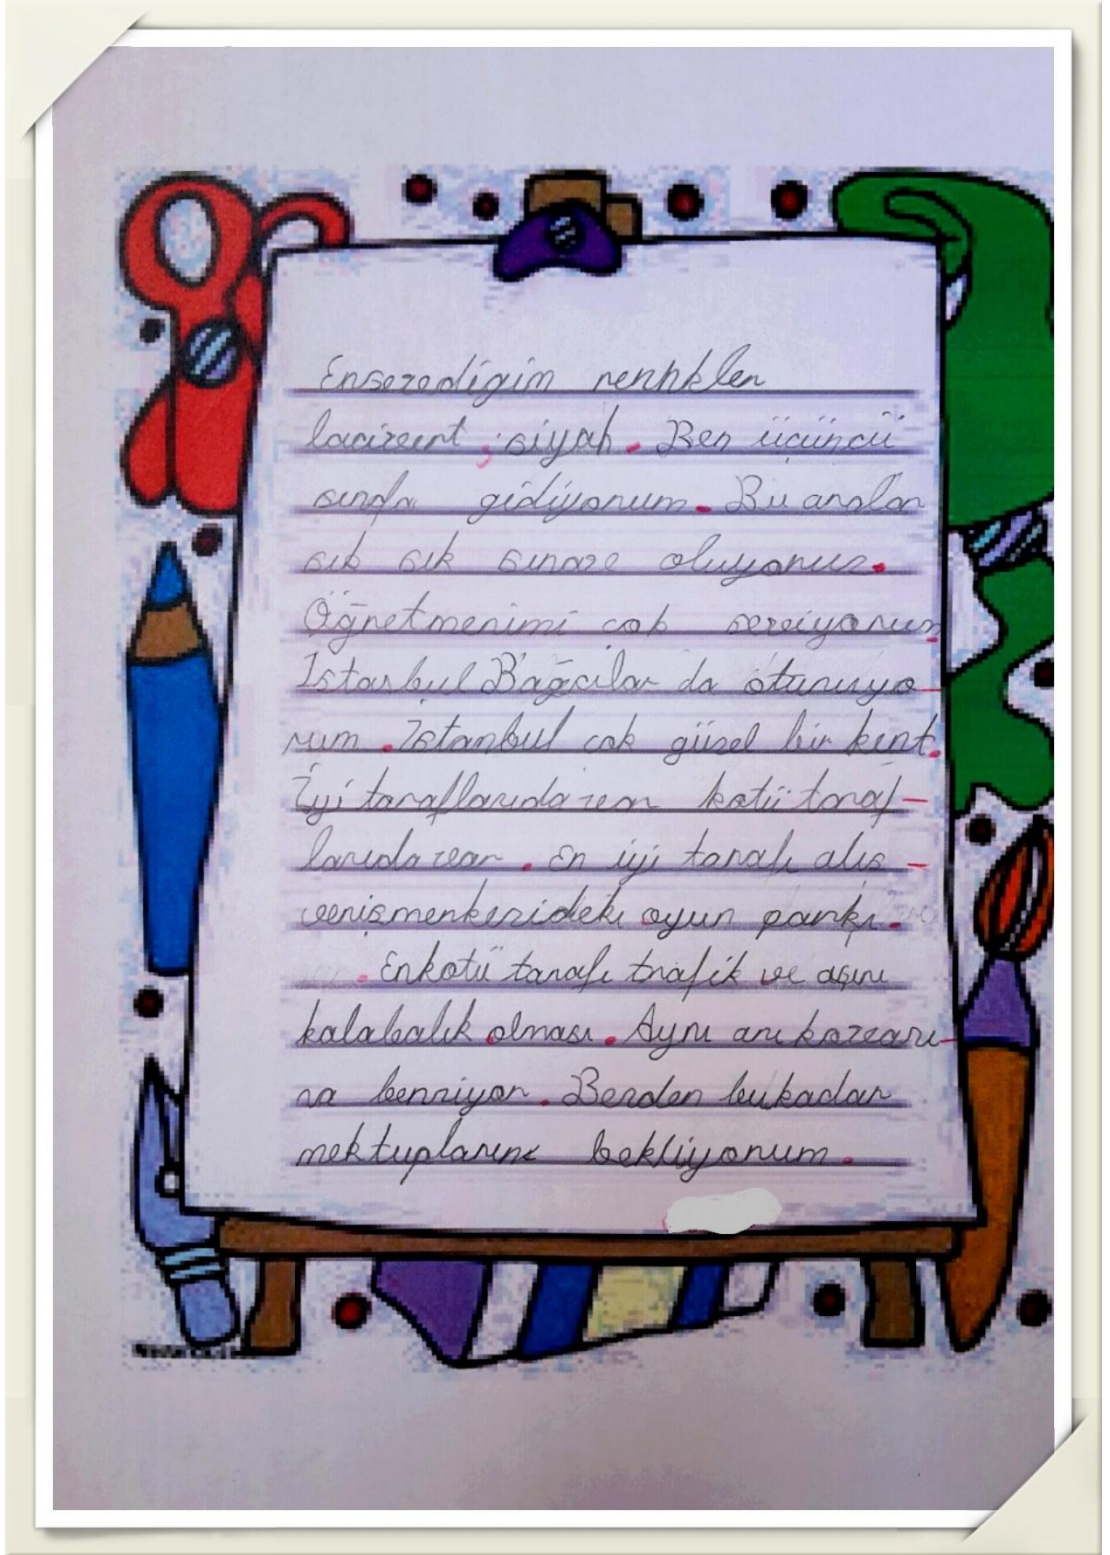 Ensevedigim renkler
lacivert, siyah. Ben üçüncü
sınıfa gidiyorum. Bu aralar
sık sık sınav oluyoruz.
Öğretmenimi cok seviyorum.
İstanbul Bağcılar da oturuyo-
rum. İstanbul cok güzel bir kent.
İyi taraflarıda var kotü taraf-
larıda var. En iyi tarafı alış-
verişmerkezideki oyun parkı.
. Enkotü tarafı trafik ve aşırı
kalabalık olması. Aynı arı kovanı-
na benziyor. Benden bukadar
mektuplarını bekliyorum.